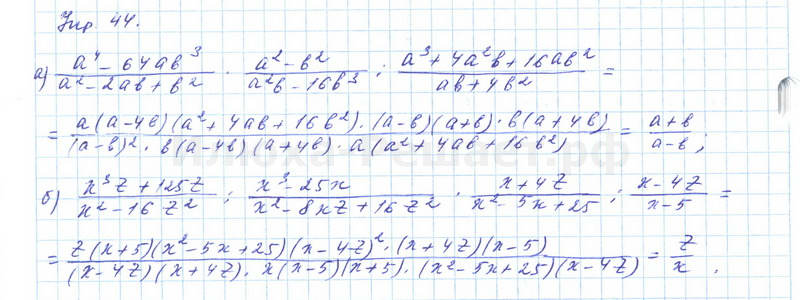 Упр 44.
а) (a⁴ - 64ab³)/(a² - 2ab + b²) · (a² - b²)/(a²b - 16b³) : (a³ + 4a²b + 16ab²)/(ab + 4b²) =
= (a(a-4b)(a² + 4ab + 16b²)·(a-b)(a+b)·b(a+4b))/((a-b)²·b(a-4b)(a+4b)·a(a²+4ab+16b²)) = (a+b)/(a-b);
б) (x³z + 125z)/(x² - 16z²) : (x³ - 25x)/(x² - 8xz + 16z²) · (x + 4z)/(x² - 5x + 25) : (x - 4z)/(x - 5) =
= (z(x+5)(x² - 5x + 25)(x - 4z)²·(x + 4z)(x - 5))/((x - 4z)(x + 4z)·x(x-5)(x+5)·(x² - 5x + 25)(x - 4z)) = z/x.